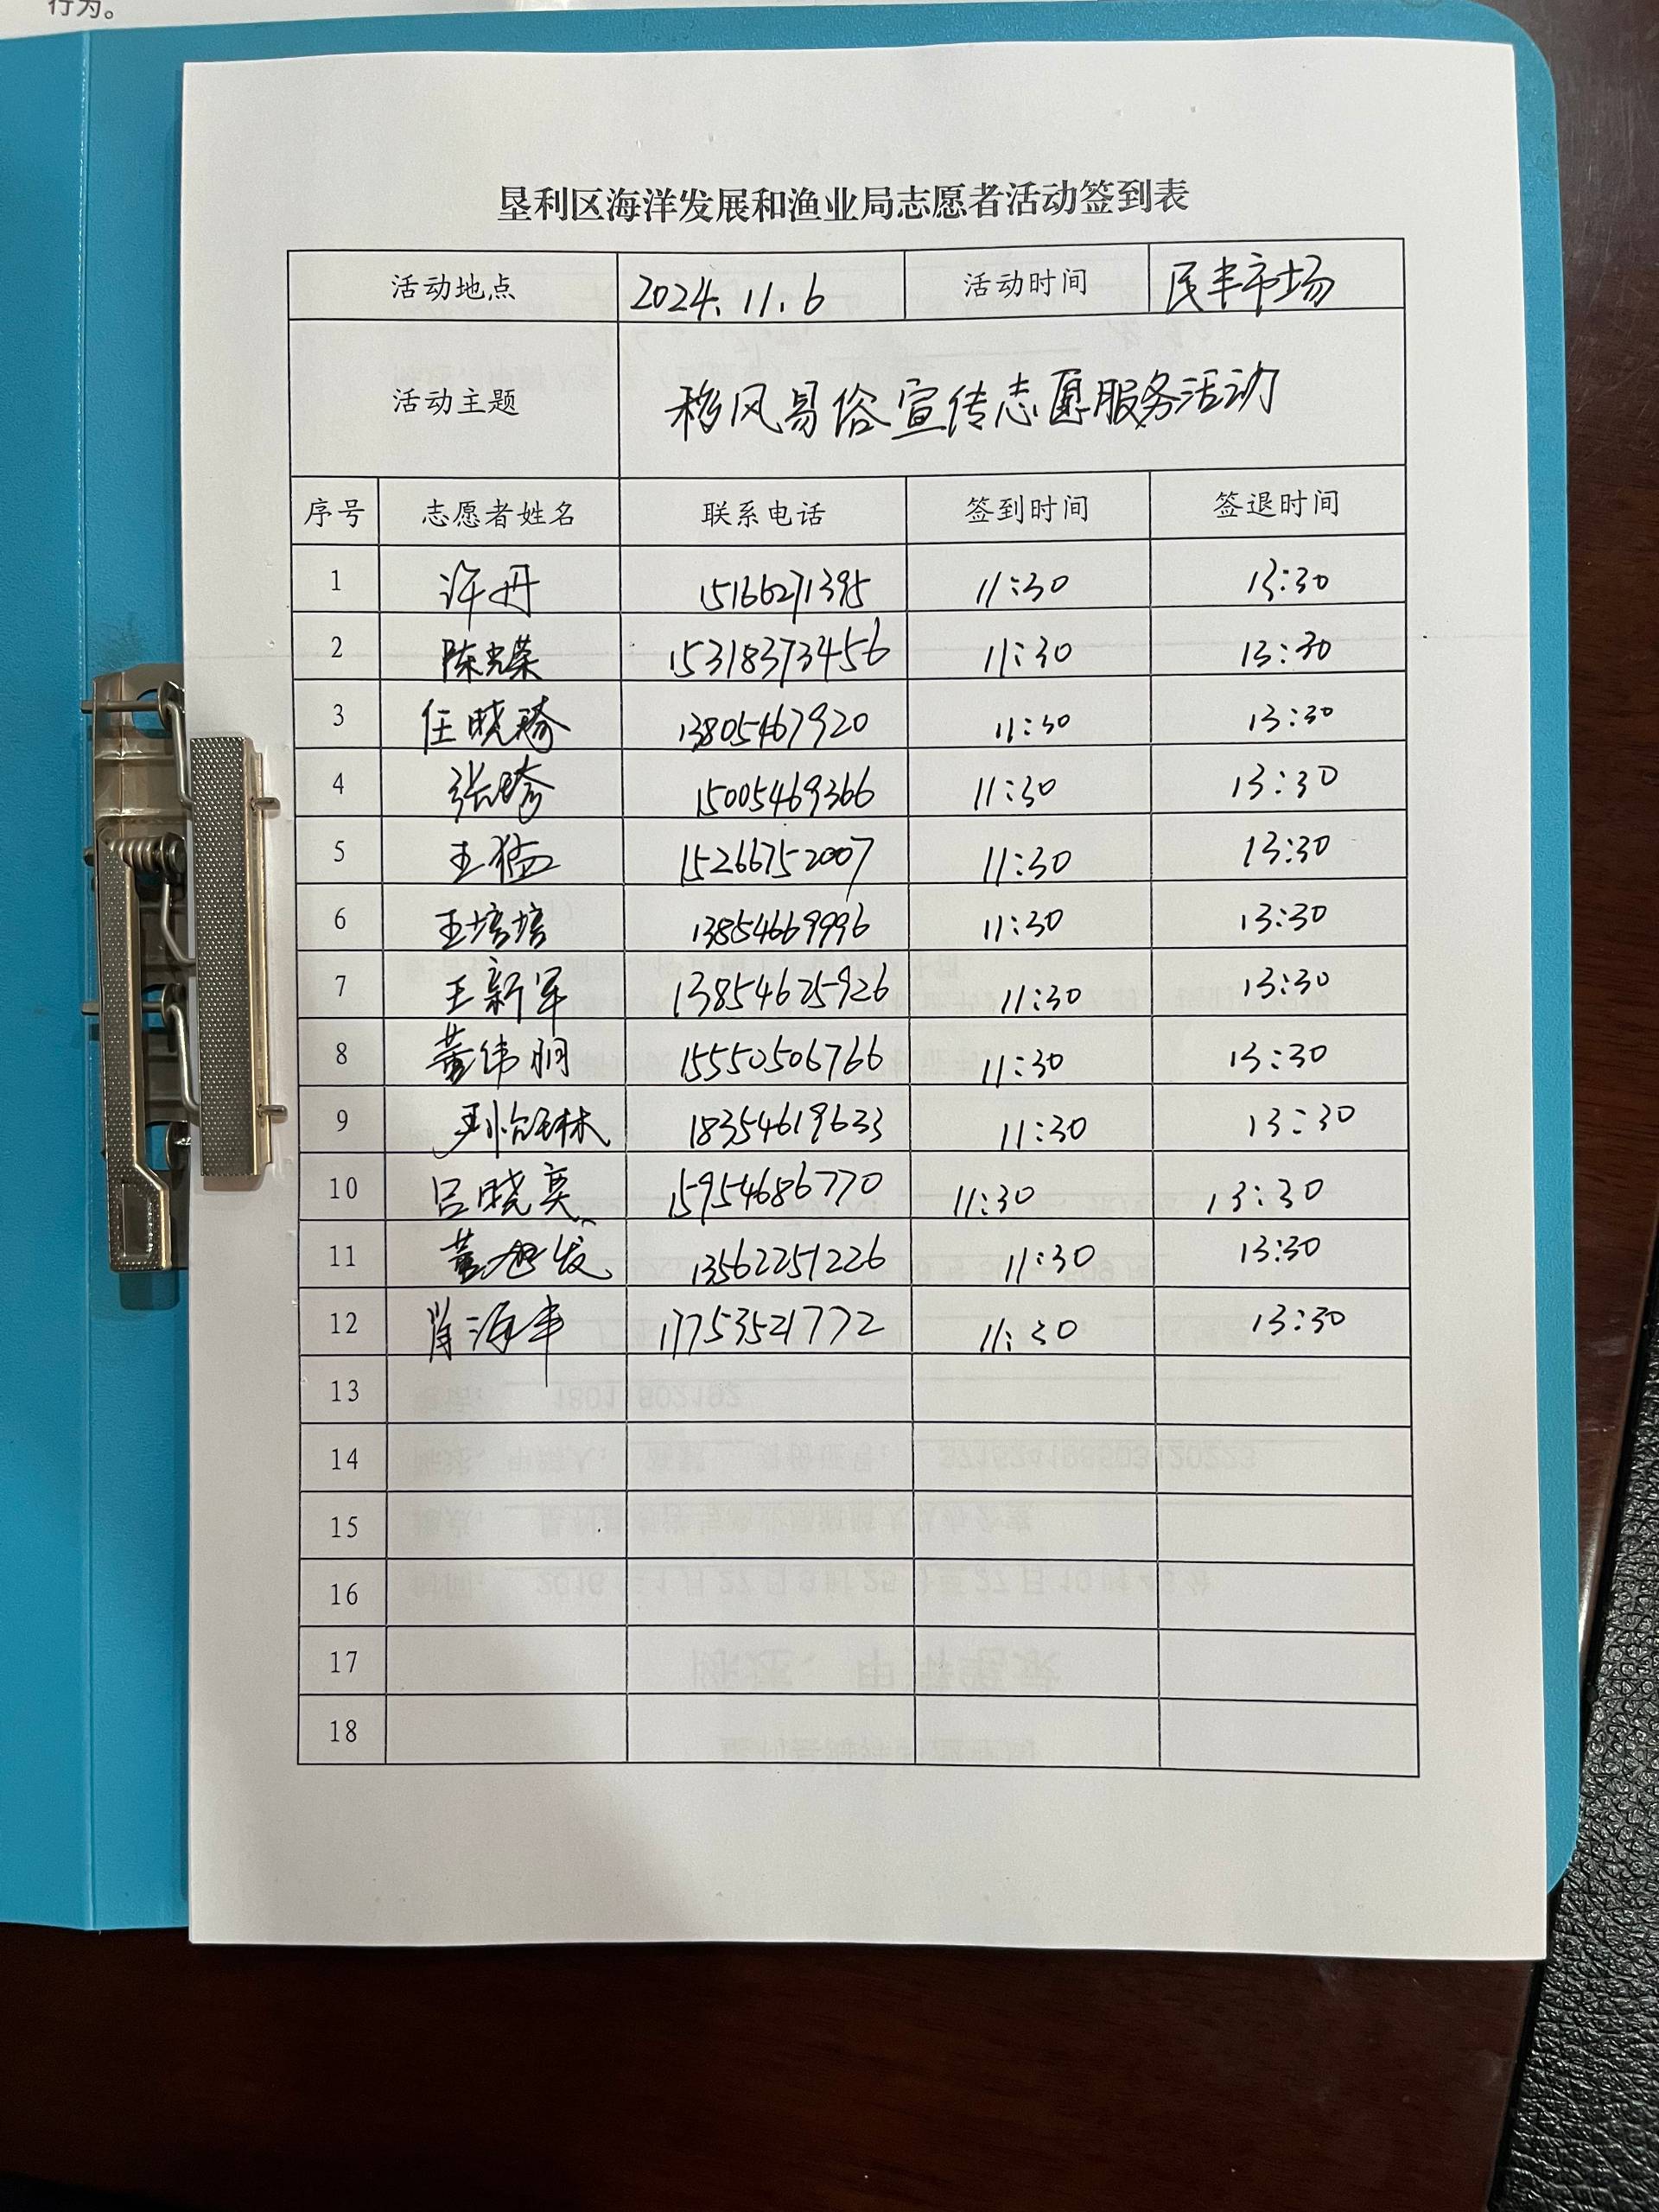 行为。
垦利区海洋发展和渔业局志愿者活动签到表
活动地点 2024.11.6 活动时间 民丰市场
活动主题 移风易俗宣传志愿服务活动
序号 志愿者姓名 联系电话 签到时间 签退时间
1 许丹 15166271395 11:30 13:30
2 陈光荣 15318373456 11:30 13:30
3 任晓琦 13805467920 11:30 13:30
4 张 15005469366 11:30 13:30
5 王猛 15266752007 11:30 13:30
6 王培培 13854669996 11:30 13:30
7 王新军 13854625926 11:30 13:30
8 董伟朋 15550506766 11:30 13:30
9 18354619633 11:30 13:30
10 吕晓奕 15954686770 11:30 13:30
11 董旭发 13562251226 11:30 13:30
12 肖海丰 17753521772 11:30 13:30
13
14
15
16
17
18